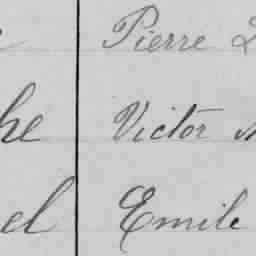 Pierre
he Victor
el Emile